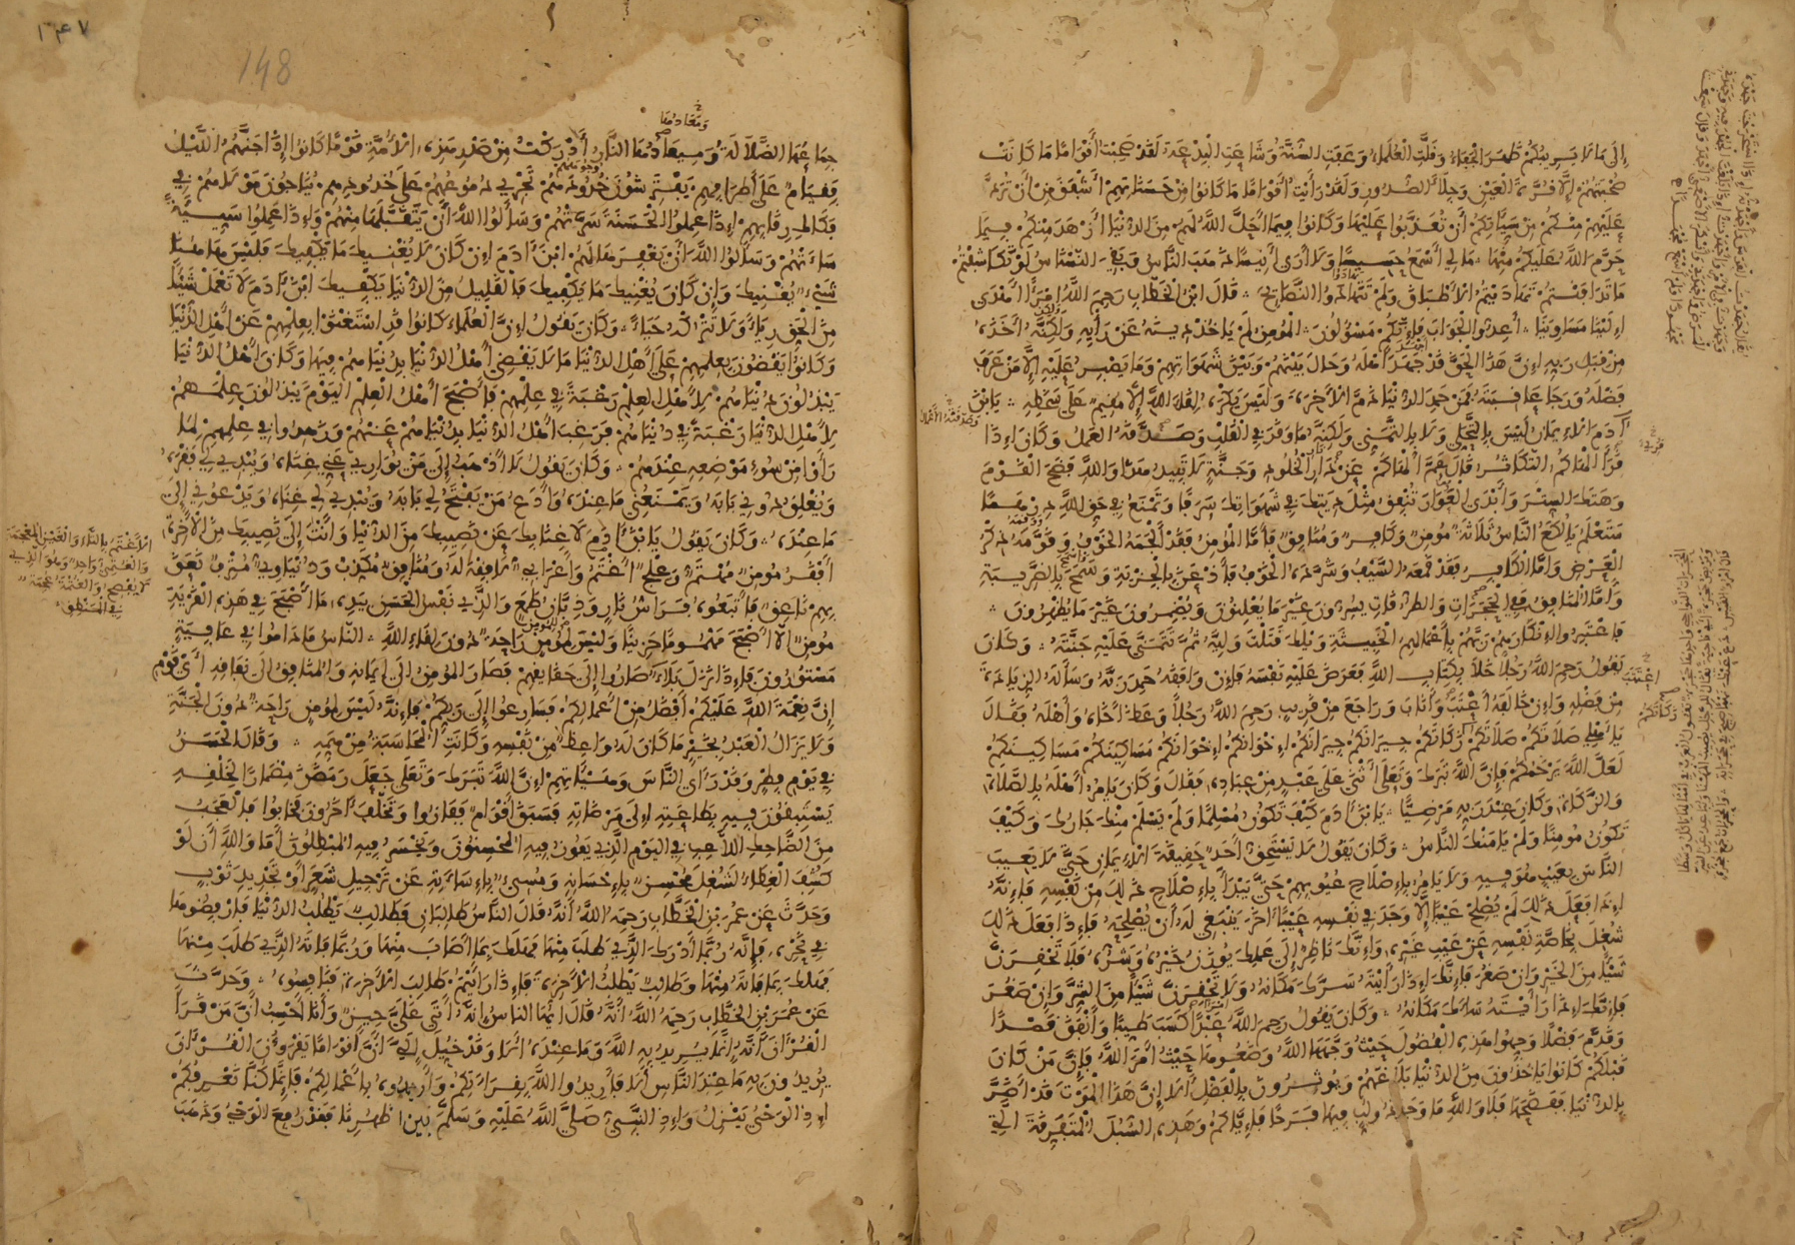 إِلَى مَا لَا يَرِيبُكُمْ ظَهَرَ الْجَفَاءُ وَقَلَّتِ الْعُلَمَاءُ وَعَفَتِ السُّنَّةُ وَشَاعَتِ الْبِدْعَةُ لَقَدْ صَحِبْتُ أَقْوَامًا مَا كَانَتْ
صُحْبَتُهُمْ إِلَّا قُرَّةَ الْعَيْنِ وَجِلَاءَ الصُّدُورِ وَلَقَدْ رَأَيْتُ أَقْوَامًا مَا كَانُوا مِنْ حَسَنَاتِهِمْ أَشْفَقَ مِنْ أَنْ تُرَدَّ
عَلَيْهِمْ مِنْكُمْ مِنْ سَيِّئَاتِكُمْ أَنْ تُعَذَّبُوا عَلَيْهَا وَكَانُوا فِيمَا أَحَلَّ اللَّهُ لَهُمْ مِنَ الدُّنْيَا أَزْهَدَ مِنْكُمْ فِيمَا
حَرَّمَ اللَّهُ عَلَيْكُمْ مِنْهَا مَا لِي أَسْمَعُ حَسِيسًا وَلَا أَرَى أَنِيسًا ذَهَبَ النَّاسُ وَبَقِيَ النَّسْنَاسُ لَوْ تَكَاشَفْتُمْ
مَا تَدَافَنْتُمْ تَهَادَيْتُمُ الْأَطْبَاقَ وَلَمْ تَتَهَادَوُا النَّصَائِحَ قَالَ ابْنُ الْخَطَّابِ رَحِمَ اللَّهُ امْرَأً أَهْدَى
إِلَيْنَا مَسَاوِيَنَا أَعِدُّوا الْجَوَابَ فَإِنَّكُمْ مَسْؤُلُونَ الْمُؤْمِنُ لَمْ يَأْخُذْ دِينَهُ عَنْ رَأْيِهِ وَلَكِنَّهُ أَخَذَهُ
مِنْ قِبَلِ رَبِّهِ إِنَّ هَذَا الْحَقَّ قَدْ جَهَدَ أَهْلَهُ وَحَالَ بَيْنَهُمْ وَبَيْنَ شَهَوَاتِهِمْ وَمَا يَصْبِرُ عَلَيْهِ إِلَّا مَنْ عَرَفَ
فَضْلَهُ وَرَجَا عَاقِبَتَهُ فَمَنْ حَمِدَ الدُّنْيَا ذَمَّ الْآخِرَةَ وَلَيْسَ يَكْرَهُ لِقَاءَ اللَّهِ إِلَّا مُقِيمٌ عَلَى سَخَطِهِ يَا ابْنَ
آدَمَ الْإِيمَانُ لَيْسَ بِالتَّحَلِّي وَلَا بِالتَّمَنِّي وَلَكِنَّهُ مَا وَقَرَ فِي الْقَلْبِ وَصَدَّقَهُ الْعَمَلُ وَكَانَ إِذَا
قَرَأَ أَلْهَاكُمُ التَّكَاثُرُ قَالَ عَمَّ أَلْهَاكُمْ عَنْ دَارِ الْخُلُودِ وَجَنَّةٍ لَا تَبِيدُ هَذَا وَاللَّهِ فَضَحَ الْقَوْمَ
وَهَتَكَ السِّتْرَ وَأَبْدَى الْعَوَارَ تُنْفِقُ مِثْلَ دِينِكَ فِي شَهَوَاتِكَ سَرَفًا وَتَمْنَعُ فِي حَقِّ اللَّهِ دِرْهَمًا
سَتَعْلَمُ يَا لُكَعُ النَّاسُ ثَلَاثَةٌ مُؤْمِنٌ وَكَافِرٌ وَمُنَافِقٌ فَأَمَّا الْمُؤْمِنُ فَقَدْ أَلْجَمَهُ الْخَوْفُ وَقَوَّمَهُ ذِكْرُ
الْعَرْضِ وَأَمَّا الْكَافِرُ فَقَدْ قَمَعَهُ السَّيْفُ وَشَرَّدَهُ الْخَوْفُ فَأَذْعَنَ بِالْجِزْيَةِ وَسَمَحَ بِالضَّرِيبَةِ
وَأَمَّا الْمُنَافِقُ فَفِي الْحُجُرَاتِ وَالطُّرُقَاتِ يُسِرُّونَ غَيْرَ مَا يُعْلِنُونَ وَيُضْمِرُونَ غَيْرَ مَا يُظْهِرُونَ
فَاعْتَبِرُوا إِنْكَارَهُمْ رَبَّهُمْ بِأَعْمَالِهِمُ الْخَبِيثَةِ وَيْلَكَ قَتَلْتَ وَلِيَّهُ ثُمَّ تَتَمَنَّى عَلَيْهِ جَنَّتَهُ وَكَانَ
يَقُولُ رَحِمَ اللَّهُ رَجُلًا خَلَا بِكِتَابِ اللَّهِ فَعَرَضَ عَلَيْهِ نَفْسَهُ فَإِنْ وَافَقَهُ حَمِدَ رَبَّهُ وَسَأَلَهُ الزِّيَادَةَ
مِنْ فَضْلِهِ وَإِنْ خَالَفَهُ أَعْتَبَ وَأَنَابَ وَرَاجَعَ مِنْ قَرِيبٍ رَحِمَ اللَّهُ رَجُلًا وَعَظَ أَخَاهُ وَأَهْلَهُ فَقَالَ
يَا أَهْلِي صَلَاتَكُمْ صَلَاتَكُمْ زَكَاتَكُمْ جِيرَانَكُمْ جِيرَانَكُمْ إِخْوَانَكُمْ إِخْوَانَكُمْ مَسَاكِينَكُمْ مَسَاكِينَكُمْ
لَعَلَّ اللَّهَ يَرْحَمُكُمْ فَإِنَّ اللَّهَ تَبَارَكَ وَتَعَالَى أَثْنَى عَلَى عَبْدٍ مِنْ عِبَادِهِ فَقَالَ وَكَانَ يَأْمُرُ أَهْلَهُ بِالصَّلَاةِ
وَالزَّكَاةِ وَكَانَ عِنْدَ رَبِّهِ مَرْضِيًّا يَا ابْنَ آدَمَ كَيْفَ تَكُونُ مُسْلِمًا وَلَمْ يَسْلَمْ مِنْكَ جَارُكَ وَكَيْفَ
تَكُونُ مُؤْمِنًا وَلَمْ يَأْمَنْكَ النَّاسُ وَكَانَ يَقُولُ لَا يَسْتَحِقُّ أَحَدٌ حَقِيقَةَ الْإِيمَانِ حَتَّى لَا يَعِيبَ
النَّاسَ بِعَيْبٍ هُوَ فِيهِ وَلَا يَأْمُرُ بِإِصْلَاحِ عُيُوبِهِمْ حَتَّى يَبْدَأَ بِإِصْلَاحِ ذَلِكَ مِنْ نَفْسِهِ فَإِنَّهُ
إِذَا فَعَلَ ذَلِكَ لَمْ يُصْلِحْ عَيْبًا إِلَّا وَجَدَ فِي نَفْسِهِ عَيْبًا آخَرَ يَنْبَغِي لَهُ أَنْ يُصْلِحَهُ فَإِذَا فَعَلَ ذَلِكَ
شُغِلَ بِخَاصَّةِ نَفْسِهِ عَنْ عَيْبِ غَيْرِهِ وَإِنَّكَ نَاظِرٌ إِلَى عَمَلِكَ يُوزَنُ خَيْرُهُ وَشَرُّهُ فَلَا تَحْقِرَنَّ
شَيْئًا مِنَ الْخَيْرِ وَإِنْ صَغُرَ فَإِنَّكَ إِذَا رَأَيْتَهُ سَرَّكَ مَكَانُهُ وَلَا تَحْقِرَنَّ شَيْئًا مِنَ الشَّرِّ وَإِنْ صَغُرَ
فَإِنَّكَ إِذَا رَأَيْتَهُ سَاءَكَ مَكَانُهُ وَكَانَ يَقُولُ رَحِمَ اللَّهُ عَبْدًا كَسَبَ طَيِّبًا وَأَنْفَقَ قَصْدًا
وَقَدَّمَ فَضْلًا وَجِّهُوا هَذِهِ الْفُضُولَ حَيْثُ وَجَّهَهَا اللَّهُ وَضَعُوهَا حَيْثُ أَمَرَ اللَّهُ فَإِنَّ مَنْ كَانَ
قَبْلَكُمْ كَانُوا يَأْخُذُونَ مِنَ الدُّنْيَا بَلَاغَهُمْ وَيُؤْثِرُونَ بِالْفَضْلِ أَلَا إِنَّ هَذَا الْمَوْتَ قَدْ أَضَرَّ
بِالدُّنْيَا فَفَضَحَهَا فَلَا وَاللَّهِ مَا وَجَدَ ذُو لُبٍّ فِيهَا فَرَحًا فَإِيَّاكُمْ وَهَذِهِ السُّبُلَ الْمُتَفَرِّقَةَ الَّتِي
١٤٧
148
جِمَاعُهَا الضَّلَالَةُ وَمِيعَادُهَا النَّارُ أَدْرَكْتُ مِنْ صَدْرِ هَذِهِ الْأُمَّةِ قَوْمًا كَانُوا إِذَا جَنَّهُمُ اللَّيْلُ
فَقِيَامٌ عَلَى أَطْرَافِهِمْ يَفْتَرِشُونَ خُدُودَهُمْ تَجْرِي دُمُوعُهُمْ عَلَى خُدُودِهِمْ يُنَاجُونَ مَوْلَاهُمْ فِي
فَكَاكِ رِقَابِهِمْ إِذَا عَمِلُوا الْحَسَنَةَ سَرَّتْهُمْ وَسَأَلُوا اللَّهَ أَنْ يَتَقَبَّلَهَا مِنْهُمْ وَإِذَا عَمِلُوا سَيِّئَةً
سَاءَتْهُمْ وَسَأَلُوا اللَّهَ أَنْ يَغْفِرَهَا لَهُمْ ابْنَ آدَمَ إِنْ كَانَ لَا يُغْنِيكَ مَا يَكْفِيكَ فَلَيْسَ هَاهُنَا
شَيْءٌ يُغْنِيكَ وَإِنْ كَانَ يُغْنِيكَ مَا يَكْفِيكَ فَالْقَلِيلُ مِنَ الدُّنْيَا يَكْفِيكَ ابْنَ آدَمَ لَا تَعْمَلْ شَيْئًا
مِنَ الْحَقِّ رِيَاءً وَلَا تَتْرُكْهُ حَيَاءً وَكَانَ يَقُولُ إِنَّ الْعُلَمَاءَ كَانُوا قَدِ اسْتَغْنَوْا بِعِلْمِهِمْ عَنْ أَهْلِ الدُّنْيَا
وَكَانُوا يَقْضُونَ بِعِلْمِهِمْ عَلَى أَهْلِ الدُّنْيَا مَا لَا يَقْضِي أَهْلُ الدُّنْيَا بِدُنْيَاهُمْ فِيهَا وَكَانَ أَهْلُ الدُّنْيَا
يَبْذُلُونَ دُنْيَاهُمْ لِأَهْلِ الْعِلْمِ رَغْبَةً فِي عِلْمِهِمْ فَأَصْبَحَ أَهْلُ الْعِلْمِ الْيَوْمَ يَبْذُلُونَ عِلْمَهُمْ
لِأَهْلِ الدُّنْيَا رَغْبَةً فِي دُنْيَاهُمْ فَرَغِبَ أَهْلُ الدُّنْيَا بِدُنْيَاهُمْ عَنْهُمْ وَزَهِدُوا فِي عِلْمِهِمْ لِمَا
رَأَوْا مِنْ سُوءِ مَوْضِعِهِ عِنْدَهُمْ وَكَانَ يَقُولُ لَا أَذْهَبُ إِلَى مَنْ يُوَارِي عَنِّي غِنَاهُ وَيُبْدِي لِي فَقْرَهُ
وَيُغْلِقُ دُونِي بَابَهُ وَيَمْنَعُنِي مَا عِنْدَهُ وَأَدَعُ مَنْ يَفْتَحُ لِي بَابَهُ وَيُبْدِي لِي غِنَاهُ وَيَدْعُونِي إِلَى
مَا عِنْدَهُ وَكَانَ يَقُولُ يَا ابْنَ آدَمَ لَا غِنَى بِكَ عَنْ نَصِيبِكَ مِنَ الدُّنْيَا وَأَنْتَ إِلَى نَصِيبِكَ مِنَ الْآخِرَةِ
أَفْقَرُ مُؤْمِنٌ مُهْتَمٌّ وَعِلْجٌ أَغْتَمُ وَأَعْرَابِيٌّ لَا فِقْهَ لَهُ وَمُنَافِقٌ مُكَذِّبٌ وَدُنْيَاوِيٌّ مُتْرَفٌ نَعَقَ
بِهِمْ نَاعِقٌ فَاتَّبَعُوهُ فَرَاشُ نَارٍ وَذِبَّانُ طَمَعٍ وَالَّذِي نَفْسُ الْحَسَنِ بِيَدِهِ مَا أَصْبَحَ فِي هَذِهِ الْقَرْيَةِ
مُؤْمِنٌ إِلَّا أَصْبَحَ مَهْمُومًا حَزِينًا وَلَيْسَ لِمُؤْمِنٍ رَاحَةٌ دُونَ لِقَاءِ اللَّهِ النَّاسُ مَا دَامُوا فِي عَافِيَةٍ
مَسْتُورُونَ فَإِذَا نَزَلَ بَلَاءٌ صَارُوا إِلَى حَقَائِقِهِمْ فَصَارَ الْمُؤْمِنُ إِلَى إِيمَانِهِ وَالْمُنَافِقُ إِلَى نِفَاقِهِ أَيْ قَوْمِ
إِنَّ نِعْمَةَ اللَّهِ عَلَيْكُمْ أَفْضَلُ مِنْ أَعْمَالِكُمْ فَسَارِعُوا إِلَى رَبِّكُمْ فَإِنَّهُ لَيْسَ لِمُؤْمِنٍ رَاحَةٌ دُونَ الْجَنَّةِ
وَلَا يَزَالُ الْعَبْدُ بِخَيْرٍ مَا كَانَ لَهُ وَاعِظٌ مِنْ نَفْسِهِ وَكَانَتِ الْمُحَاسَبَةُ مِنْ هَمِّهِ وَقَالَ الْحَسَنُ
فِي يَوْمِ فِطْرٍ وَقَدْ رَأَى النَّاسَ وَهَيْئَاتِهِمْ إِنَّ اللَّهَ تَبَارَكَ وَتَعَالَى جَعَلَ رَمَضَانَ مِضْمَارًا لِخَلْقِهِ
يَسْتَبِقُونَ فِيهِ بِطَاعَتِهِ إِلَى مَرْضَاتِهِ فَسَبَقَ أَقْوَامٌ فَفَازُوا وَتَخَلَّفَ آخَرُونَ فَخَابُوا فَالْعَجَبُ
مِنَ الضَّاحِكِ اللَّاعِبِ فِي الْيَوْمِ الَّذِي يَفُوزُ فِيهِ الْمُحْسِنُونَ وَيَخْسَرُ فِيهِ الْمُبْطِلُونَ أَمَا وَاللَّهِ أَنْ لَوْ
كُشِفَ الْغِطَاءُ لَشُغِلَ مُحْسِنٌ بِإِحْسَانِهِ وَمُسِيءٌ بِإِسَاءَتِهِ عَنْ تَرْجِيلِ شَعَرٍ أَوْ تَجْدِيدِ ثَوْبٍ
وَحَدَّثَ عَنْ عُمَرَ بْنِ الْخَطَّابِ رَحِمَهُ اللَّهُ أَنَّهُ قَالَ النَّاسُ طَالِبَانِ فَطَالِبٌ يَطْلُبُ الدُّنْيَا فَارْفُضُوهَا
فِي نَحْرِهِ فَإِنَّهُ رُبَّمَا أَدْرَكَ الَّذِي طَلَبَ مِنْهَا فَهَلَكَ بِمَا أَصَابَ مِنْهَا وَرُبَّمَا فَاتَهُ الَّذِي طَلَبَ مِنْهَا
فَهَلَكَ بِمَا فَاتَهُ مِنْهَا وَطَالِبٌ يَطْلُبُ الْآخِرَةَ فَإِذَا رَأَيْتُمْ طَالِبَ الْآخِرَةِ فَنَافِسُوهُ وَحَدَّثَ
عَنْ عُمَرَ بْنِ الْخَطَّابِ رَحِمَهُ اللَّهُ أَنَّهُ قَالَ أَيُّهَا النَّاسُ إِنَّهُ أَتَى عَلَيَّ حِينٌ وَأَنَا أَحْسِبُ أَنَّ مَنْ قَرَأَ
الْقُرْآنَ أَنَّهُ إِنَّمَا يُرِيدُ بِهِ اللَّهَ وَمَا عِنْدَهُ أَلَا وَقَدْ خُيِّلَ إِلَيَّ أَنَّ أَقْوَامًا يَقْرَؤُونَ الْقُرْآنَ
يُرِيدُونَ بِهِ مَا عِنْدَ النَّاسِ أَلَا فَأَرِيدُوا اللَّهَ بِقِرَاءَتِكُمْ وَأَرِيدُوهُ بِأَعْمَالِكُمْ فَإِنَّمَا كُنَّا نَعْرِفُكُمْ
إِذِ الْوَحْيُ يَنْزِلُ وَإِذِ النَّبِيُّ صَلَّى اللَّهُ عَلَيْهِ وَسَلَّمَ بَيْنَ أَظْهُرِنَا فَقَدْ رُفِعَ الْوَحْيُ وَذَهَبَ